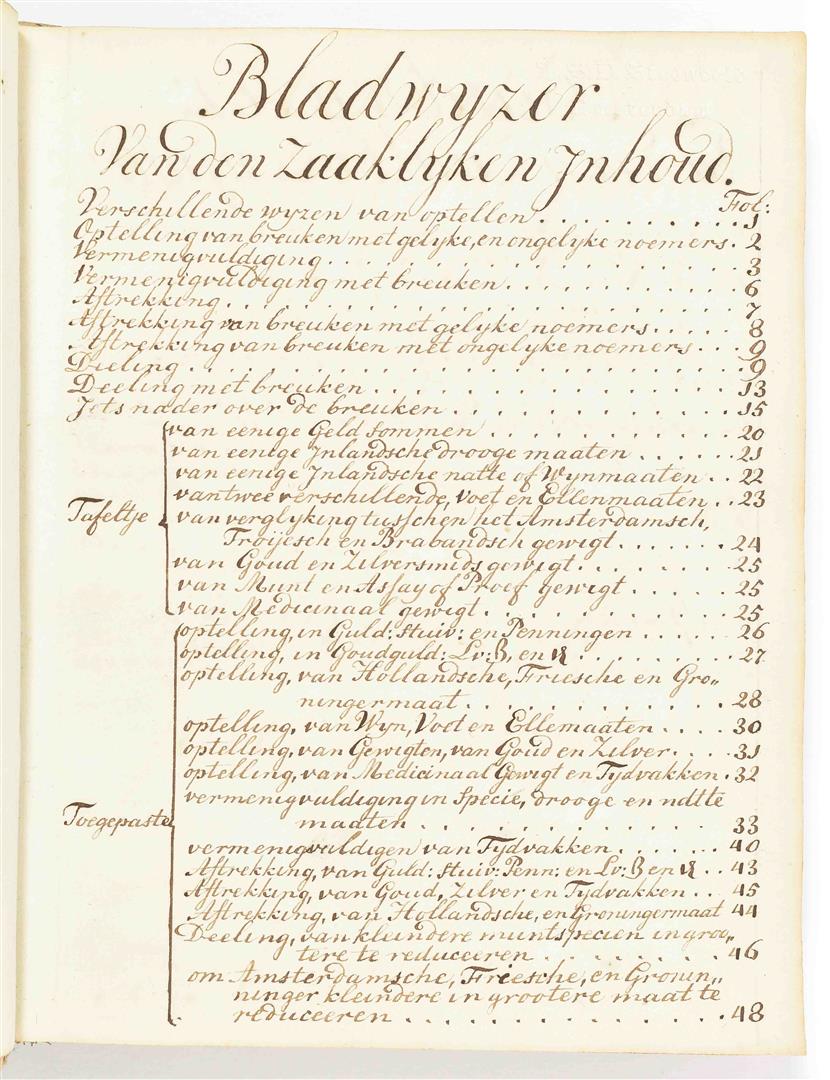 Bladwyzer
Van den Zaaklyken Inhoud.
Fol:
Verschillende wyzen van optellen . . . . . . . . . . 1
Optelling van breuken met gelyke, en ongelyke noemers. 2
Vermenigvuldiging . . . . . . . . . . . . . . . . . . 3
Vermenigvuldiging met breuken . . . . . . . . . . . 6
Aftrekking . . . . . . . . . . . . . . . . . . . . . . 7
Aftrekking van breuken met gelyke noemers . . . . . 8
Aftrekking van breuken met ongelyke noemers . . . 9
Dieling . . . . . . . . . . . . . . . . . . . . . . . 9
Deeling met breuken . . . . . . . . . . . . . . . 13
Iets nader over de breuken . . . . . . . . . . . . 15
van eenige Geld sommen . . . . . . . . . . . 20
van eenige Inlandsche drooge maaten . . . . . 21
van eenige Inlandsche natte of Wynmaaten . . 22
van twee verschillende, Voet en Ellenmaaten . . 23
Tafeltje van verglyking tusschen het Amsterdamsch,
Troijesch en Brabandsch gewigt . . . . . . 24
van Goud en Zilversmids gewigt . . . . . . 25
van Munt en Assay of Proef gewigt . . . . . 25
van Medicinaal gewigt . . . . . . . . . . . 25
optelling, in Guld: Stuiv: en Penningen . . . . . 26
optelling, in Goudguld: Lv: ẞ, en ₰ . . . . . . . . 27
optelling, van Hollandsche, Friesche en Gro„
ningermaat . . . . . . . . . . . . . 28
optelling, van Wyn, Voet en Ellemaaten . . . . 30
optelling, van Gewigten, van Goud en Zilver . . . . 31
optelling, van Medicinaal Gewigt en Tydvakken . 32
vermenigvuldiging in Specie, drooge en natte
Toegepaste maaten . . . . . . . . . . . . . . 33
vermenigvuldigen van Tydvakken . . . . . . 40
Aftrekking, van Guld: Stuiv: Penn: en Lv: ẞ en ₰ . . 43
Aftrekking, van Goud, Zilver en Tydvakken . . 45
Aftrekking, van Hollandsche, en Groningermaat 44
Deeling, van kleindere muntspecien in groo„
tere te reduceeren . . . . . . . . . 46
om Amsterdamsche, Friesche, en Gronin„
ninger kleindere in grootere maat te
reduceeren . . . . . . . . . . . . . 48